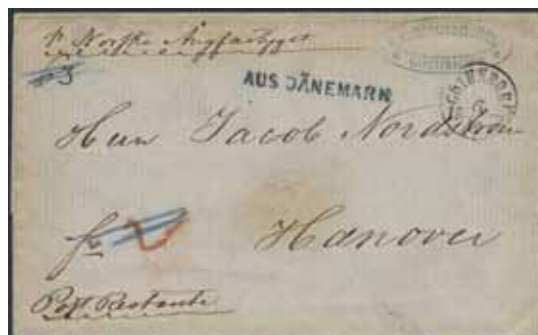 pr Norske Ångfartyget
AUS DÄNEMARK
Herrn Jacob Nordström
fr
Hanover
Post Restante